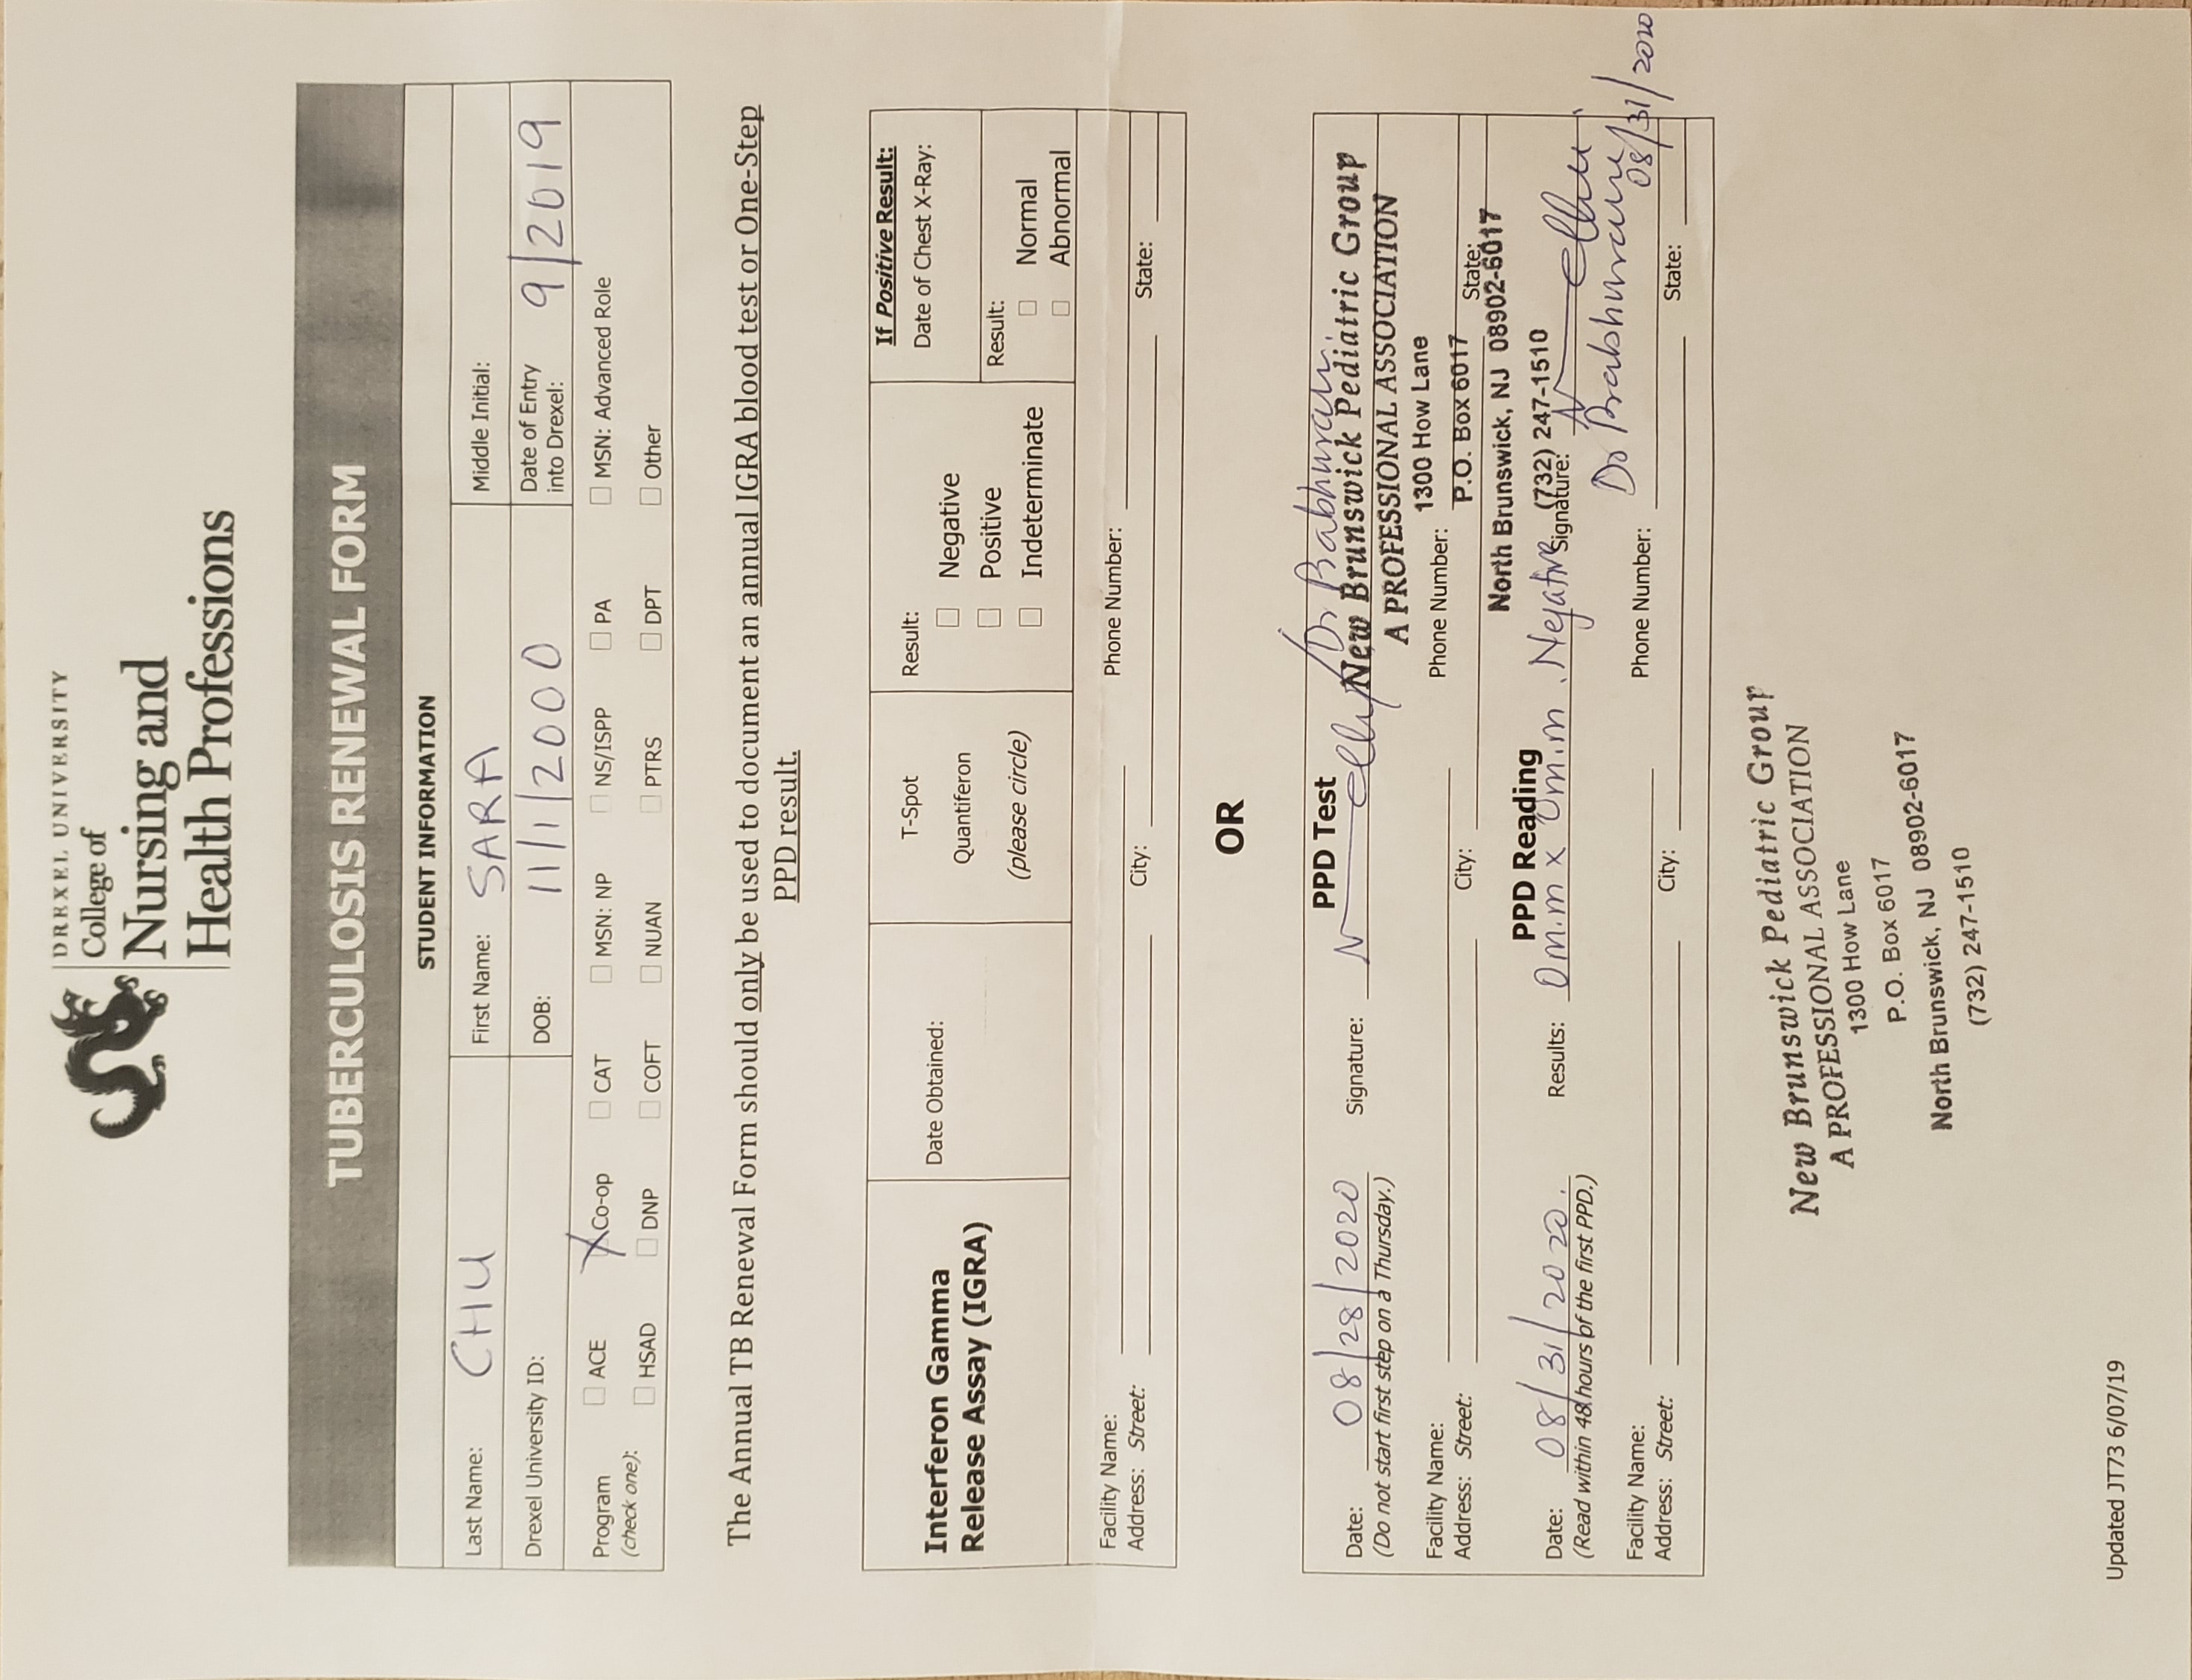 DREXEL UNIVERSITY
College of
Nursing and
Health Professions
TUBERCULOSIS RENEWAL FORM
STUDENT INFORMATION
Last Name: CHU First Name: SARA Middle Initial:
Drexel University ID: DOB: 11/1/2000 Date of Entry into Drexel: 9/2019
Program (check one): ACE Co-op CAT MSN: NP NS/ISPP PA MSN: Advanced Role
HSAD DNP COFT NUAN PTRS DPT Other
The Annual TB Renewal Form should only be used to document an annual IGRA blood test or One-Step
PPD result.
Interferon Gamma
Release Assay (IGRA)
Date Obtained:
T-Spot
Quantiferon
(please circle)
Result:
Negative
Positive
Indeterminate
If Positive Result:
Date of Chest X-Ray:
Result:
Normal
Abnormal
Facility Name: Phone Number:
Address: Street: City: State:
OR
PPD Test
Dr Prabhuram.
Date: 08/28/2020 Signature:
(Do not start first step on a Thursday.)
New Brunswick Pediatric Group
A PROFESSIONAL ASSOCIATION
1300 How Lane
Facility Name: Phone Number:
P.O. Box 6017
Address: Street: City: State:
North Brunswick, NJ 08902-6017
PPD Reading
(732) 247-1510
Date: 08/31/2020. Results: 0m.m x 0m.m . Negative Signature:
(Read within 48 hours of the first PPD.)
Facility Name: Phone Number:
08/31/2020
Address: Street: City: State:
New Brunswick Pediatric Group
A PROFESSIONAL ASSOCIATION
1300 How Lane
P.O. Box 6017
North Brunswick, NJ 08902-6017
(732) 247-1510
Updated JT73 6/07/19